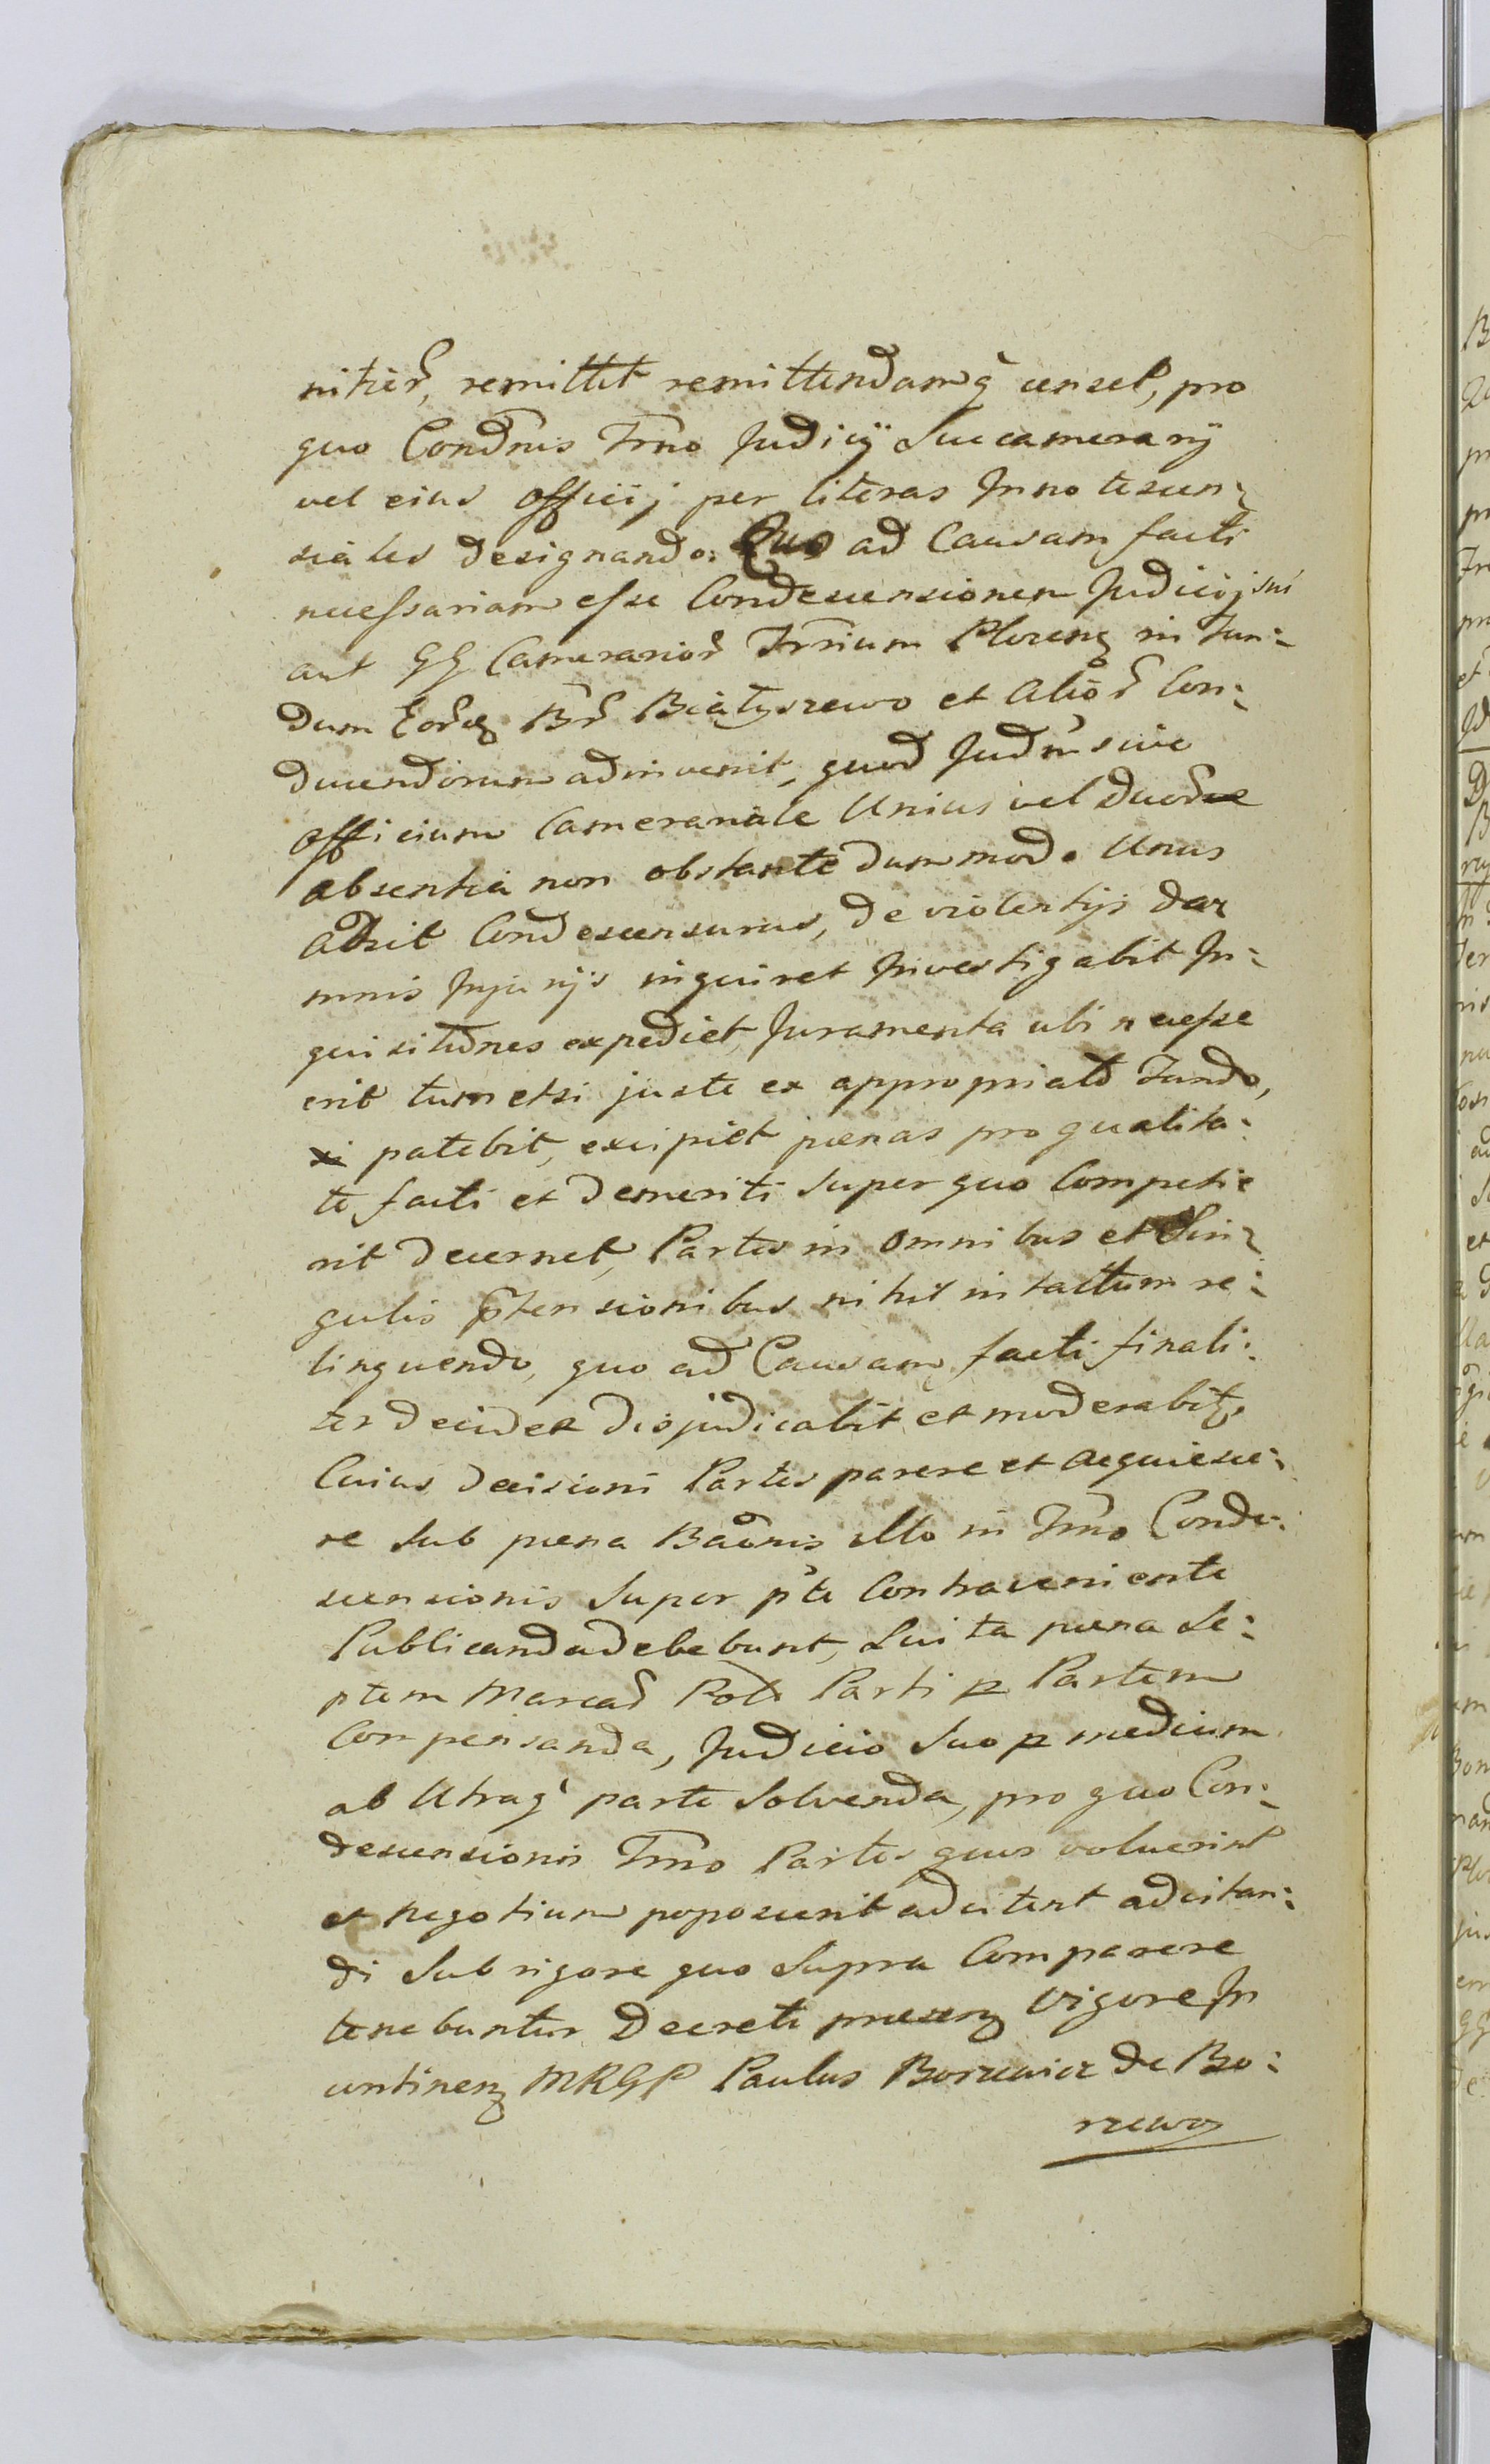 nitier, remittit remittendamq censet, pro
quo Condnis Trno Judicij Succamerarij
vel eius officij per literas Innotescen:
tiales designando. Quo ad Causam facti
necessariam esse Condescensionem Judicij sui
aut GG Camerarior Trrium Plocens in fun:
dum Eorūd Br Białyszewo et Alior Con:
ducendorum adinvenit, quod Judm sive
officium Camerariale Unius vel duor
absentia non obstante dummodo Unus
adsit Condescensurus, de violentijs da
mnis Injurijs inquiret Investigabit In:
quisitones expediet, Juramenta ubi necesse
erit tum etsi juste ex appropriato fundo,
patebit, excipiet pœnas pro qualita:
te facti et demeriti super quo Competie
rit decernet, Partes in omnibus et Sin:
gulis prtensionibus nihil intactum re:
linquendo, quo ad Causam facti finali:
ter decidet disjudicabit et moderabit,
Cuius decisioni Partes parere et acquiesce:
re sub pœna Baonis illo in Trno Conde:
scensionis super pte Contraveniente
Publicanda debebunt, Luita pœna Se:
ptem Marcar Pol Parti p Partem
Compensanda, Judicio suo p medium
ab Utraq parte solvenda, pro quo Con:
descensionis Trno Partes quos voluerint
et negotium poposcerit adcitent adcitan:
di sub rigore quo supra Comparere
tenebuntur Decreti praesen vigore In
continen MRGP Paulus Borzewicz de Bo:
rzewo